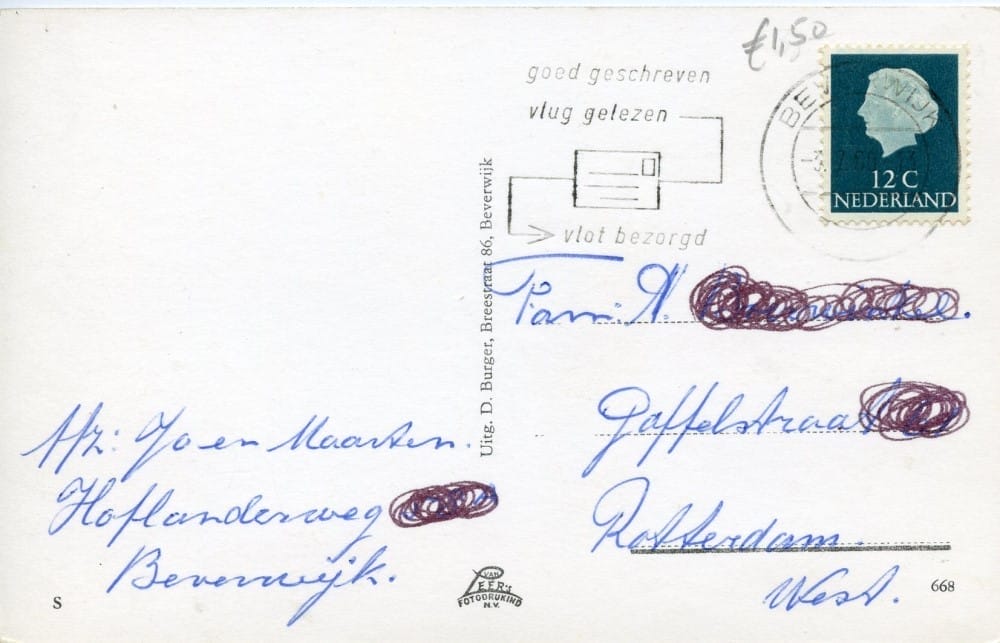 £1,50
goed geschreven
vlug gelezen
vlot bezorgd
BEVERWIJK
12 C
NEDERLAND
Uitg. D. Burger, Breestraat 86, Beverwijk
Fam. N.
Gaffelstraat
Rotterdam.
West.
Afz: Jo en Maarten.
Hoflanderweg
Beverwijk.
S
VAN
LEER's
FOTODRUKIND
N.V.
668